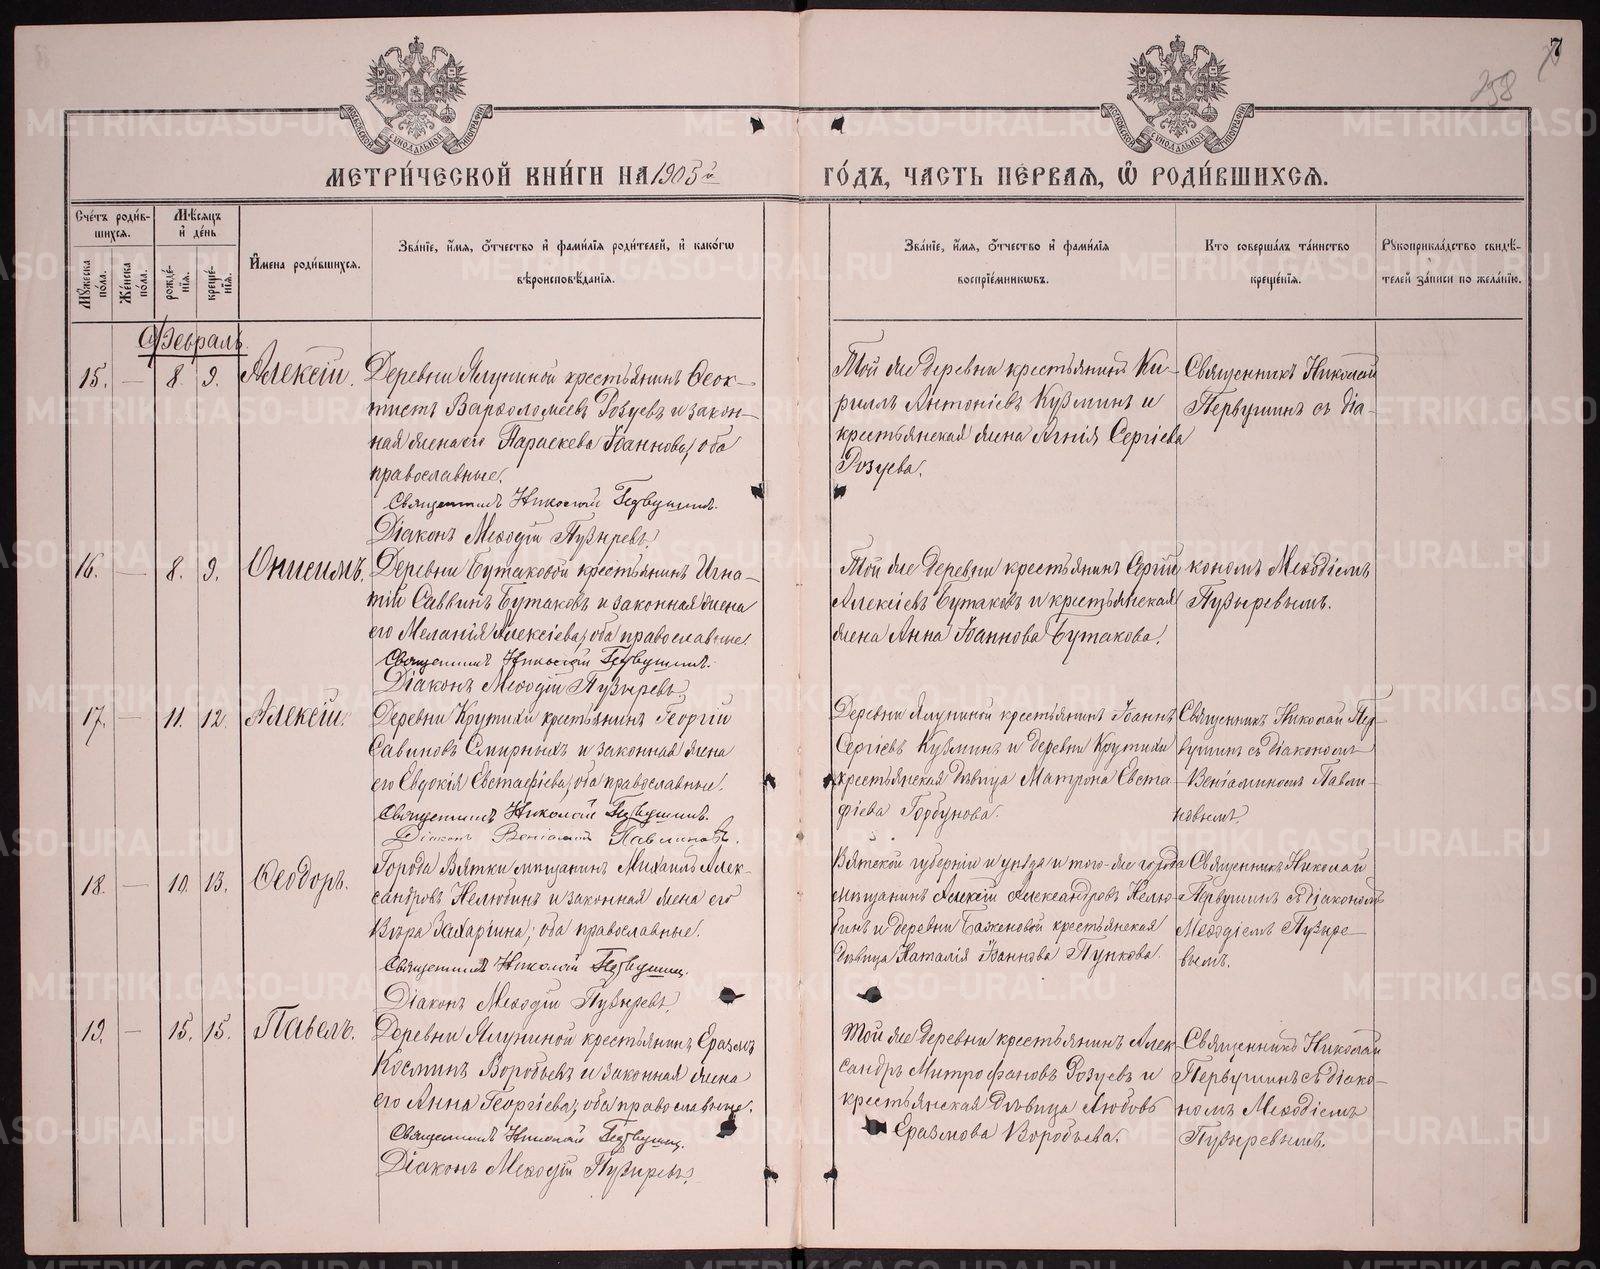 7
258
МЕТРИ́ЧЕСКОЙ КНИ́ГИ НА 1905й ГО́ДЪ, ЧАСТЬ ПЕ́РВАЯ, Ѿ РОДИ́ВШИХСЯ.
Сче́тъ роди́вшихся.
Мѣ́сяцъ и де́нь
Му́жеска по́ла.
Же́нска по́ла.
рожде́нія.
креще́нія.
И́мена роди́вшихся.
Зва́ніе, и́мя, о́тчество и фами́лія роди́телей, и како́гѡ
вѣроисповѣ́данія.
Зва́ніе, и́мя, о́тчество и фами́лія
воспріе́мниковъ.
Кто соверша́лъ та́инство
креще́нія.
Рукоприкла́дство свидѣ́-
телей за́писи по жела́нію.
Февраль.
15. — 8. 9. Алексій.
Деревни Ялуниной крестьянинъ Ѳеок-
тистъ Варѳоломеевъ Розуевъ и закон-
ная жена его Параскева Іоаннова, оба
православные.
Священникъ Николай Первушинъ.
Діаконъ Меѳодій Пузыревъ.
Той же деревни крестьянинъ Ки-
риллъ Антоніевъ Кузминъ и
крестьянская жена Агнія Сергіева
Розуева.
Священникъ Николай
Первушинъ съ діа-
16. — 8. 9. Онисимъ.
Деревни Бутаковой крестьянинъ Игна-
тій Саввинъ Бутаковъ и законная жена
его Меланія Алексіева, оба православные.
Священникъ Николай Первушинъ.
Діаконъ Меѳодій Пузыревъ.
Той же деревни крестьянинъ Сергій
Алексіевъ Бутаковъ и крестьянская
жена Анна Іоаннова Бутакова.
кономъ Меѳодіемъ
Пузыревымъ.
17. — 11. 12. Алексій.
Деревни Крутихи крестьянинъ Георгій
Савиновъ Смирныхъ и законная жена
его Евдокія Евстафіева, оба православные.
Священникъ Николай Первушинъ.
Діаконъ Веніаминъ Павлиновъ.
Деревни Ялуниной крестьянинъ Іоаннъ
Сергіевъ Кузминъ и деревни Крутихи
крестьянская дѣвица Матрона Евста-
фіева Горбунова.
Священникъ Николай Пер-
вушинъ съ діакономъ
Веніаминомъ Павли-
новымъ.
18. — 10. 13. Ѳеодоръ.
Города Вятки мѣщанинъ Михаилъ Алек-
сандровъ Нелюбинъ и законная жена его
Вѣра Захаріина, оба православные.
Священникъ Николай Первушинъ.
Діаконъ Меѳодій Пузыревъ.
Вятской губерніи и уѣзда и того-же города
мѣщанинъ Алексій Александровъ Нелю-
бинъ и деревни Баженовой крестьянская
дѣвица Наталія Іоаннова Пункова.
Священникъ Николай
Первушинъ съ діакономъ
Меѳодіемъ Пузыре-
вымъ.
19. — 15. 15. Павелъ.
Деревни Ялуниной крестьянинъ Еразмъ
Косминъ Воробьевъ и законная жена
его Анна Георгіева, оба православные.
Священникъ Николай Первушинъ.
Діаконъ Меѳодій Пузыревъ.
Той же деревни крестьянинъ Алек-
сандръ Митрофановъ Розуевъ и
крестьянская дѣвица Любовь
Еразмова Воробьева.
Священникъ Николай
Первушинъ съ діако-
номъ Меѳодіемъ
Пузыревымъ.